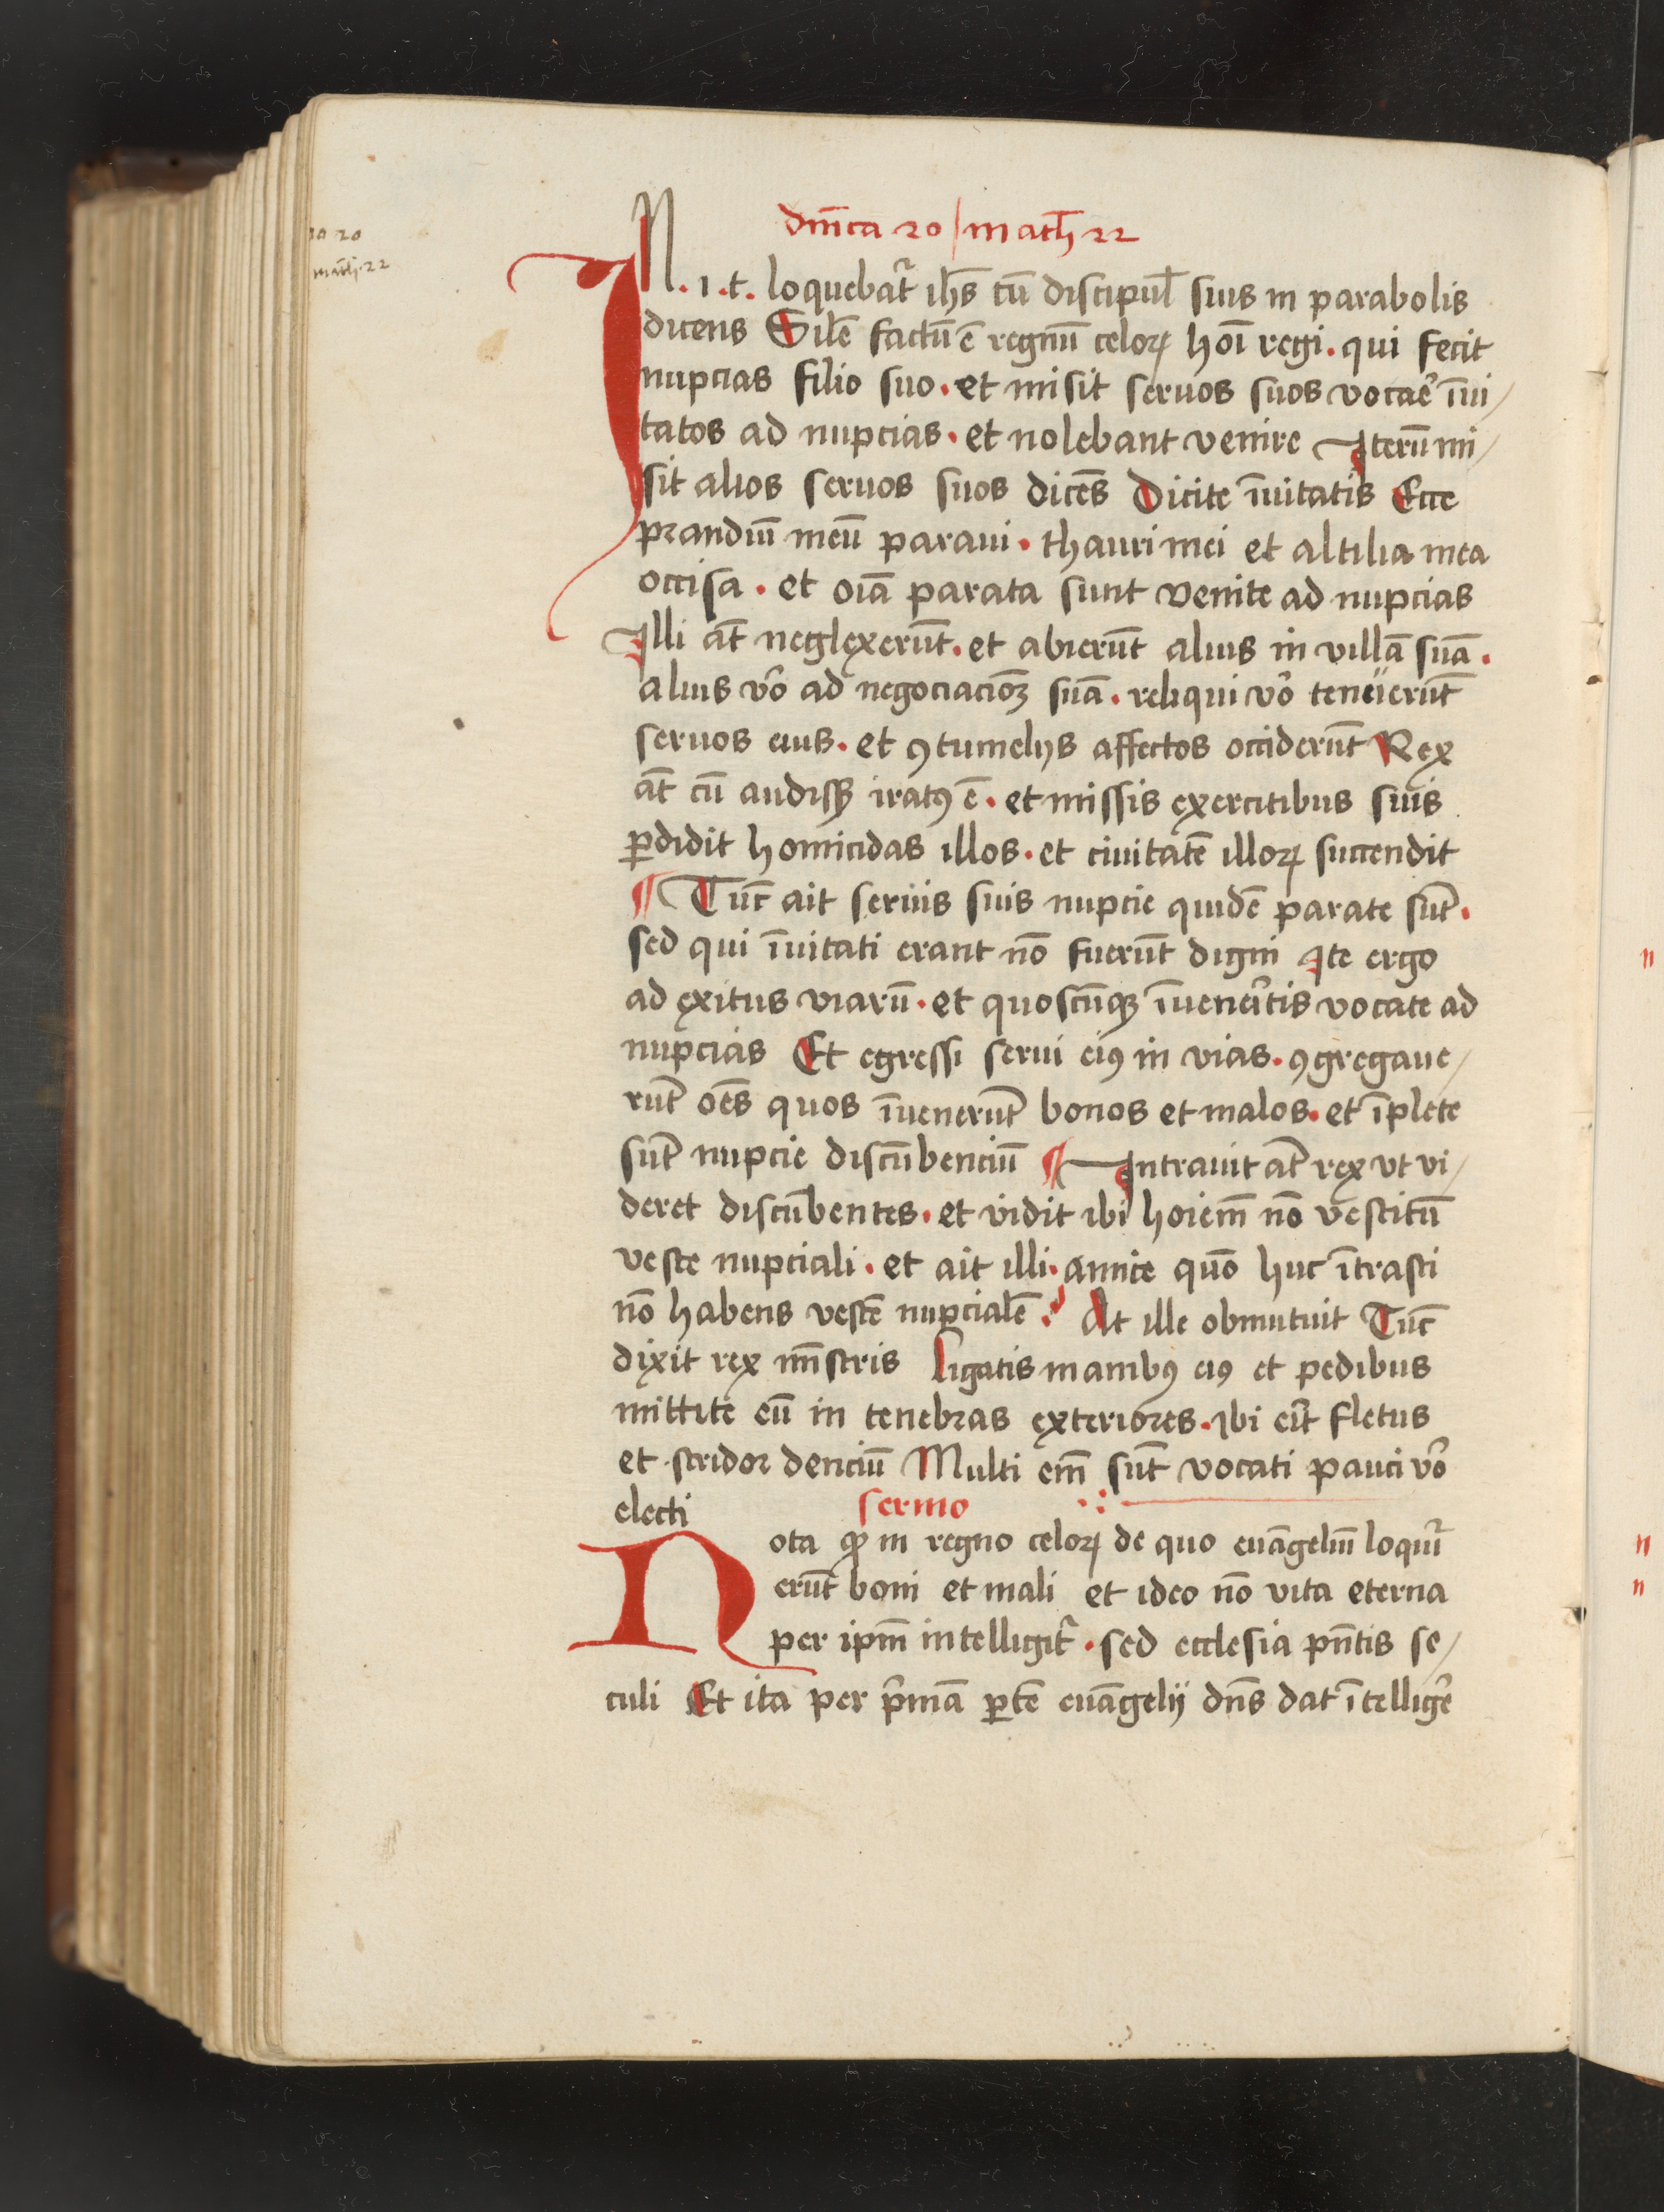 do 20
math 22
dm̄ca 20 | math 22
IN .i.t. loquebat᷑ ihs̄ cū discipul̄ suis in parabolis
dicens Sil̄e factū ē regnū celoꝝ hoī regi . qui fecit
nupcias filio suo . et misit seruos suos vocaē īui/
tatos ad nupcias . et nolebant venire Iterū mi/
sit alios seruos suos dicēs Dicite īuitatis Ecce
prandiū meū paraui . thauri mei et altilia mea
occisa . et oīa parata sunt venite ad nupcias
Illi āt neglexerūt . et abierūt alius in villā suā .
alius v̄o ad negociacōꝫ suā . reliqui v̄o tenuerūt
seruos eius . et ꝯtumelijs affectos occiderūt Rex
āt cū audisꝫ iratꝰ ē . et missis exercitibus suis
ꝑdidit homicidas illos . et ciuitatē illoꝝ succendit
¶ Tūc ait seruis suis nupcie quidē parate sūt .
sed qui īuitati erant nō fuerūt digni Ite ergo
ad exitus viarū . et quoscūqꝫ īueneītis vocate ad
nupcias Et egressi serui eiꝰ in vias . ꝯgregaue/
rūt oēs quos īuenerūt bonos et malos . et īplete
sūt nupcie discūbenciū ¶ Intrauit āt rex vt vi/
deret discūbentes . et vidit ibi hoiem̄ nō vestitū
veste nupciali . et ait illi . amice quō huc ītrasti
nō habens vestē nupcialē ? At ille obmutuit Tūc
dixit rex mīstris Ligatis manibꝰ eiꝰ et pedibus
mittite eū in tenebras exteriores . Ibi eīt fletus
et stridor denciū Multi em̄ sūt vocati pauci v̄o
electi
sermo
Nota ꝙ in regno celoꝝ de quo euāgeliū loquit᷑
erūt boni et mali et ideo nō vita eterna
per ipm̄ intelligit᷑ . sed ecclesia pn̄tis se/
culi Et ita per p̄mā ꝑtē euāgelij dn̄s dat ītelligē